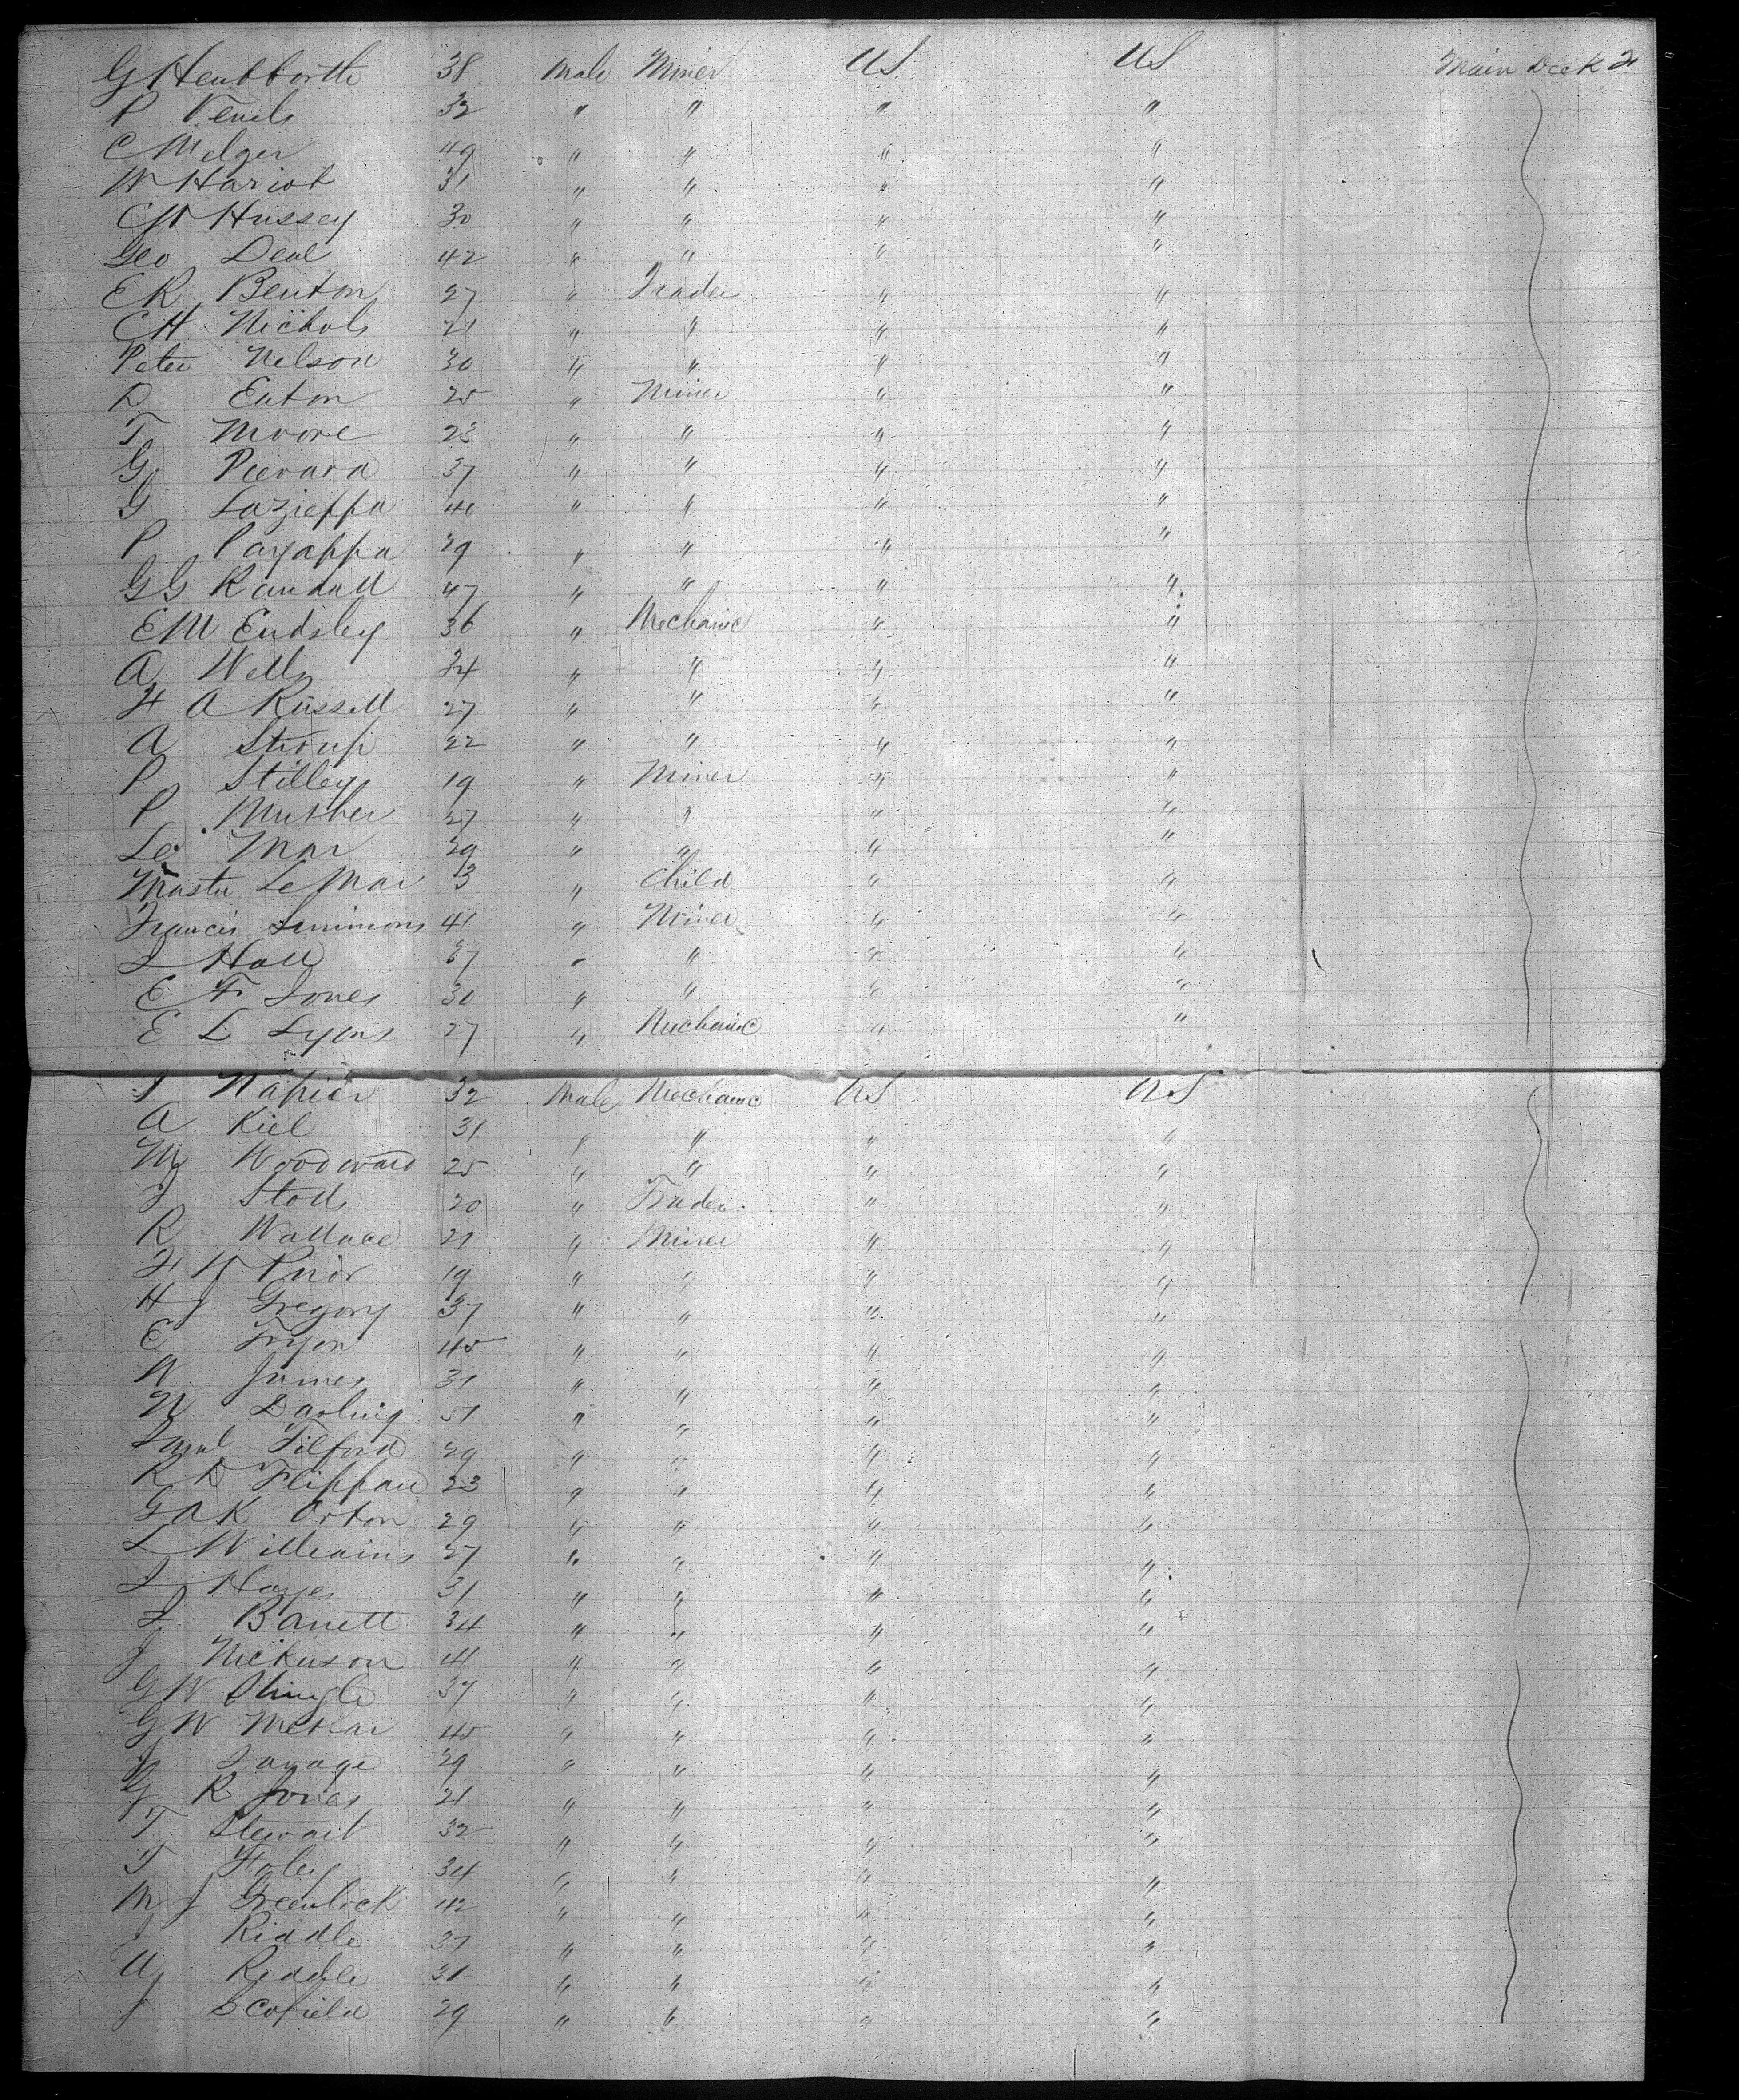 G Hentborth 38 Male Miner US US Main Deck 2
P 32 " " " "
C Melger 49 " " " "
W Hariot 31 " " " "
C W Hussey 30 " " " "
Geo Deal 42 " " " "
E R Benton 27 " Trader " "
C H Nichols 21 " " " "
Peter Nelson 30 " " " "
D Eaton 25 " Miner " "
T Moore 23 " " " "
G Pierara " " " " "
G Lazieppa 40 " " " "
P Payappa 29 " " " "
G G Randall 47 " " " "
E M Endsley 36 " Mechanic " "
A Wells 24 " " " "
H A Russell 27 " " " "
A Stroup 22 " " " "
P Stilleys 19 " Miner " "
P Musher 27 " " " "
Le Mar 29 " " " "
Master Le Mar 3 " Child " "
Francis Simmons 41 " Miner " "
S Hall 37 " " " "
E F Jones 30 " " " "
E L Lyons 27 " Mechanic " "
J Napier 32 Male Mechanic US US
A Kiel 31 " " " "
M Woodward 25 " " " "
J Stolls 20 " Trader " "
R Wallace 21 " Miner " "
H W Prior 19 " " " "
H J Gregory 37 " " " "
E Tryon 45 " " " "
W James 31 " " " "
W Darling 51 " " " "
Saml Tilford 29 " " " "
R D Flippan 23 " " " "
G A K Orton 29 " " " "
L Williams 27 " " " "
L Hayes 31 " " " "
J Barrett 34 " " " "
J Nickerson 41 " " " "
G W Shingle 37 " " " "
G W 45 " " " "
J Savage 29 " " " "
G R Jones 21 " " " "
T Stewart 32 " " " "
T Foley 34 " " " "
M J Greenlock 42 " " " "
J Riddle 37 " " " "
W Riddle 31 " " " "
J Scofield 29 " " " "